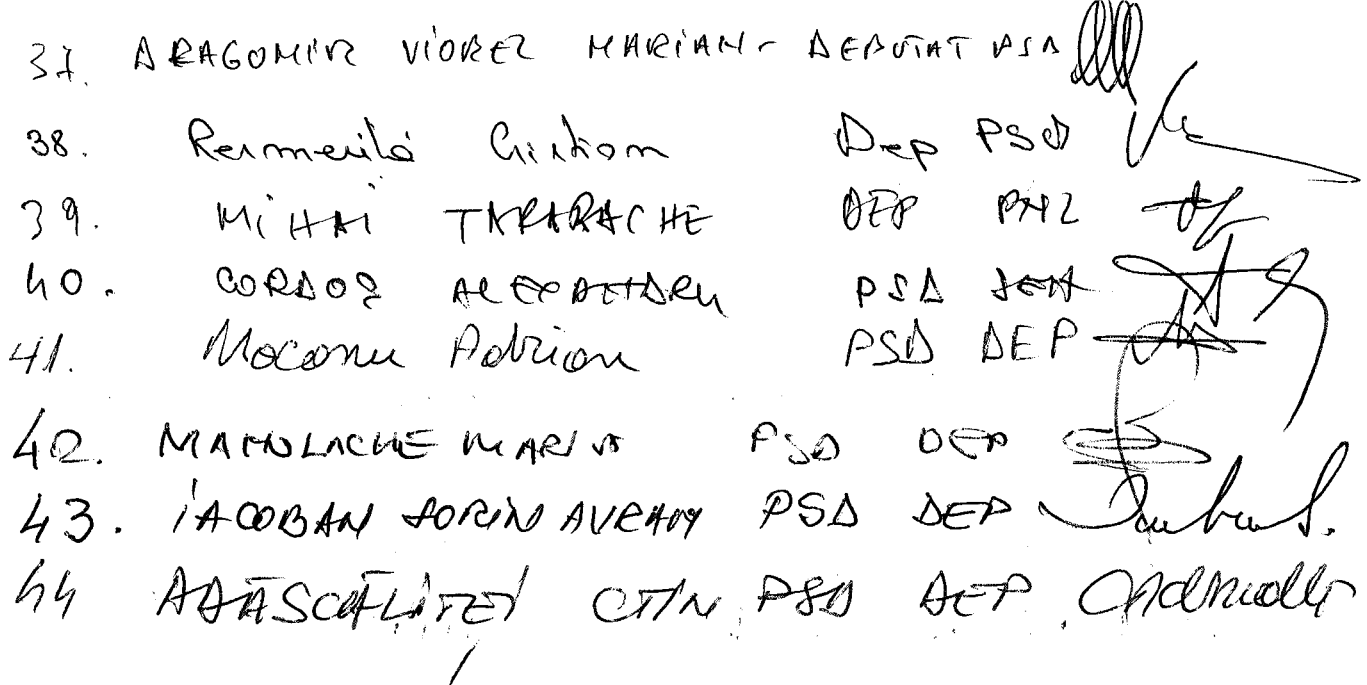 37. DRAGOMIR VIOREL MARIAN - DEPUTAT PSD
38. Remeníla Cristian Dep PSD
39. MIHAI TARARACHE DEP PNL
40. CORDOȘ ALEXANDRU PSD SEN
41. Mocanu Adrian PSD DEP
42. MANOLACHE MARIUS PSD DEP
43. IACOBAN SORIN AVRAM PSD DEP
44 ADĂSCĂLIȚEI CTIN PSD DEP